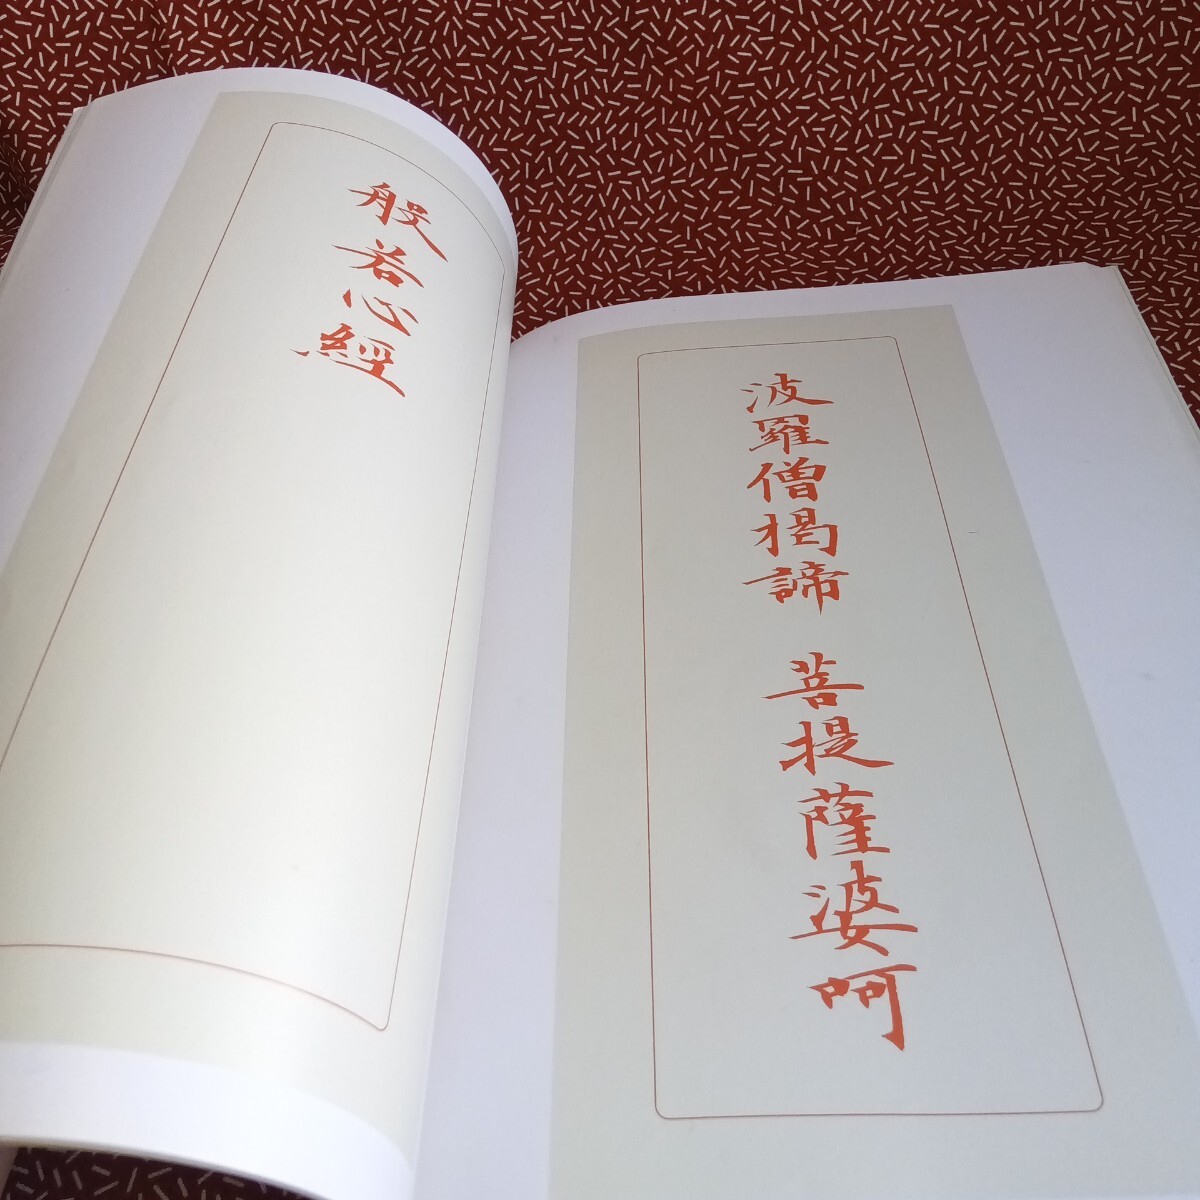 波羅僧揭諦 菩提薩婆呵
般若心經